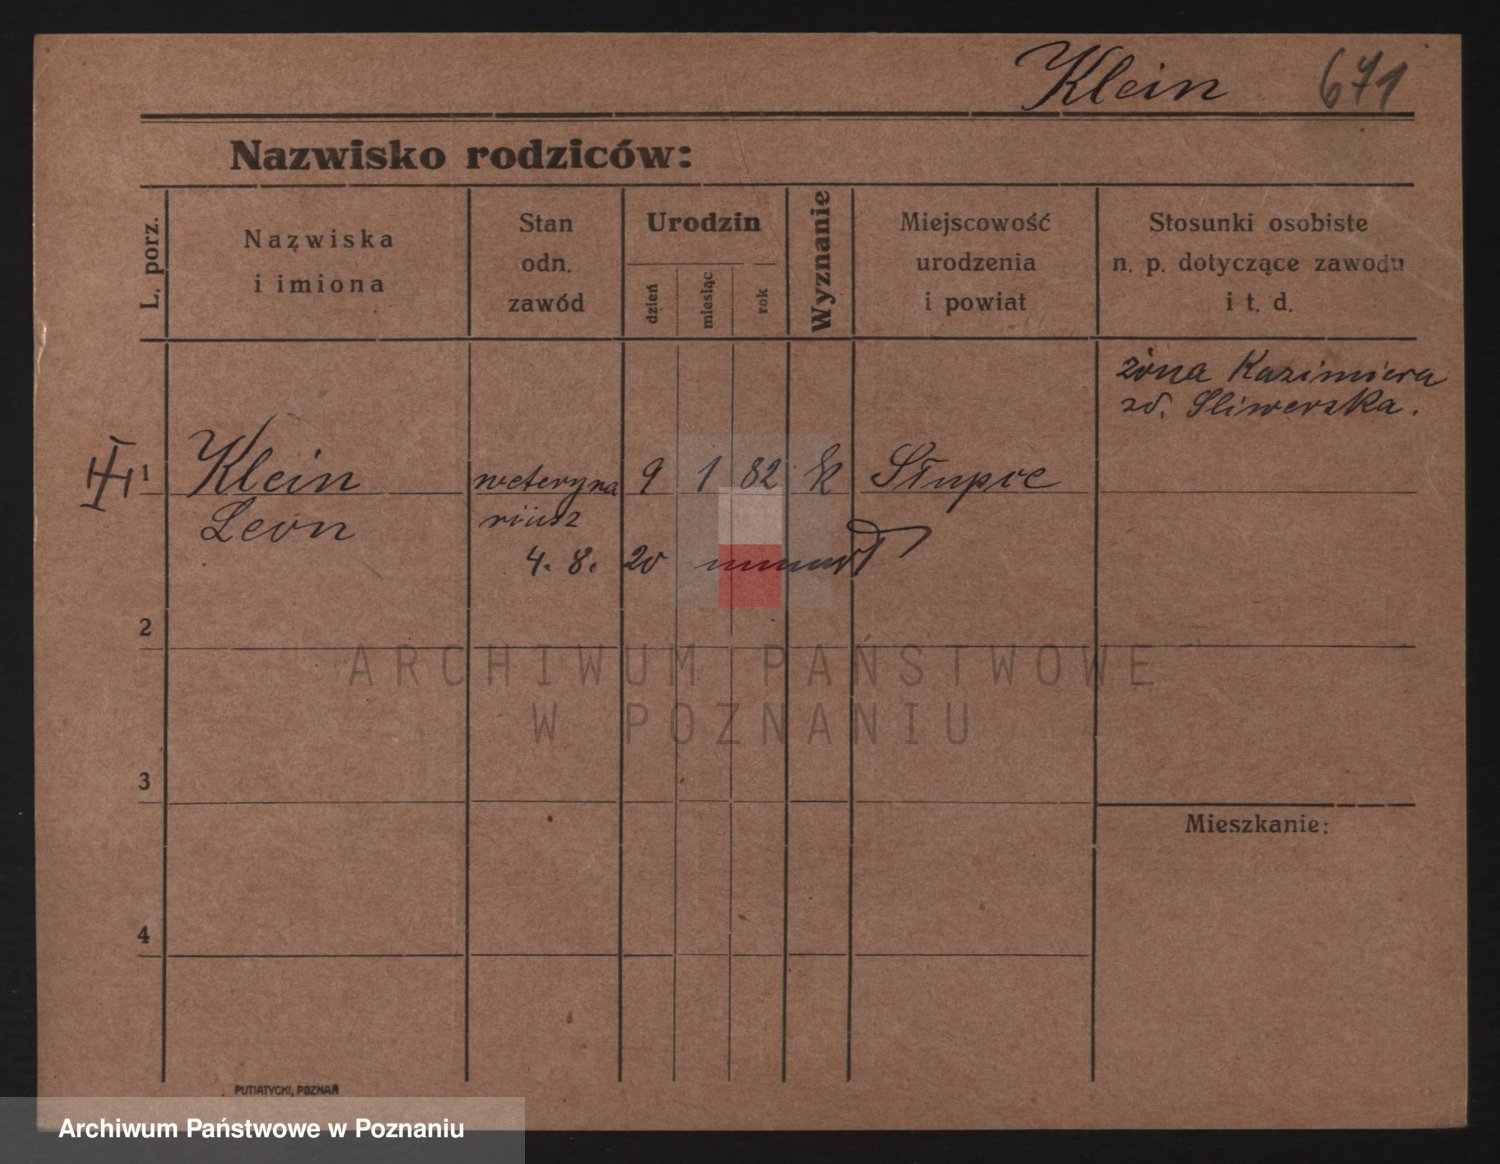 Klein 671
Nazwisko rodziców:
L. porz.
Nazwiska
i imiona
Stan
odn.
zawód
Urodzin
dzień
miesiąc
rok
Wyznanie
Miejscowość
urodzenia
i powiat
Stosunki osobiste
n. p. dotyczące zawodu
i t. d.
żona Kazimiera
zd. Sliwerska.
1 Klein weteryna 9 1 82 k Słupce
Leon riusz
4. 8. 20 umarł
2
3
4
Mieszkanie:
PUTIATYCKI, POZNAŃ
ARCHIWUM PAŃSTWOWE
W POZNANIU
Archiwum Państwowe w Poznaniu